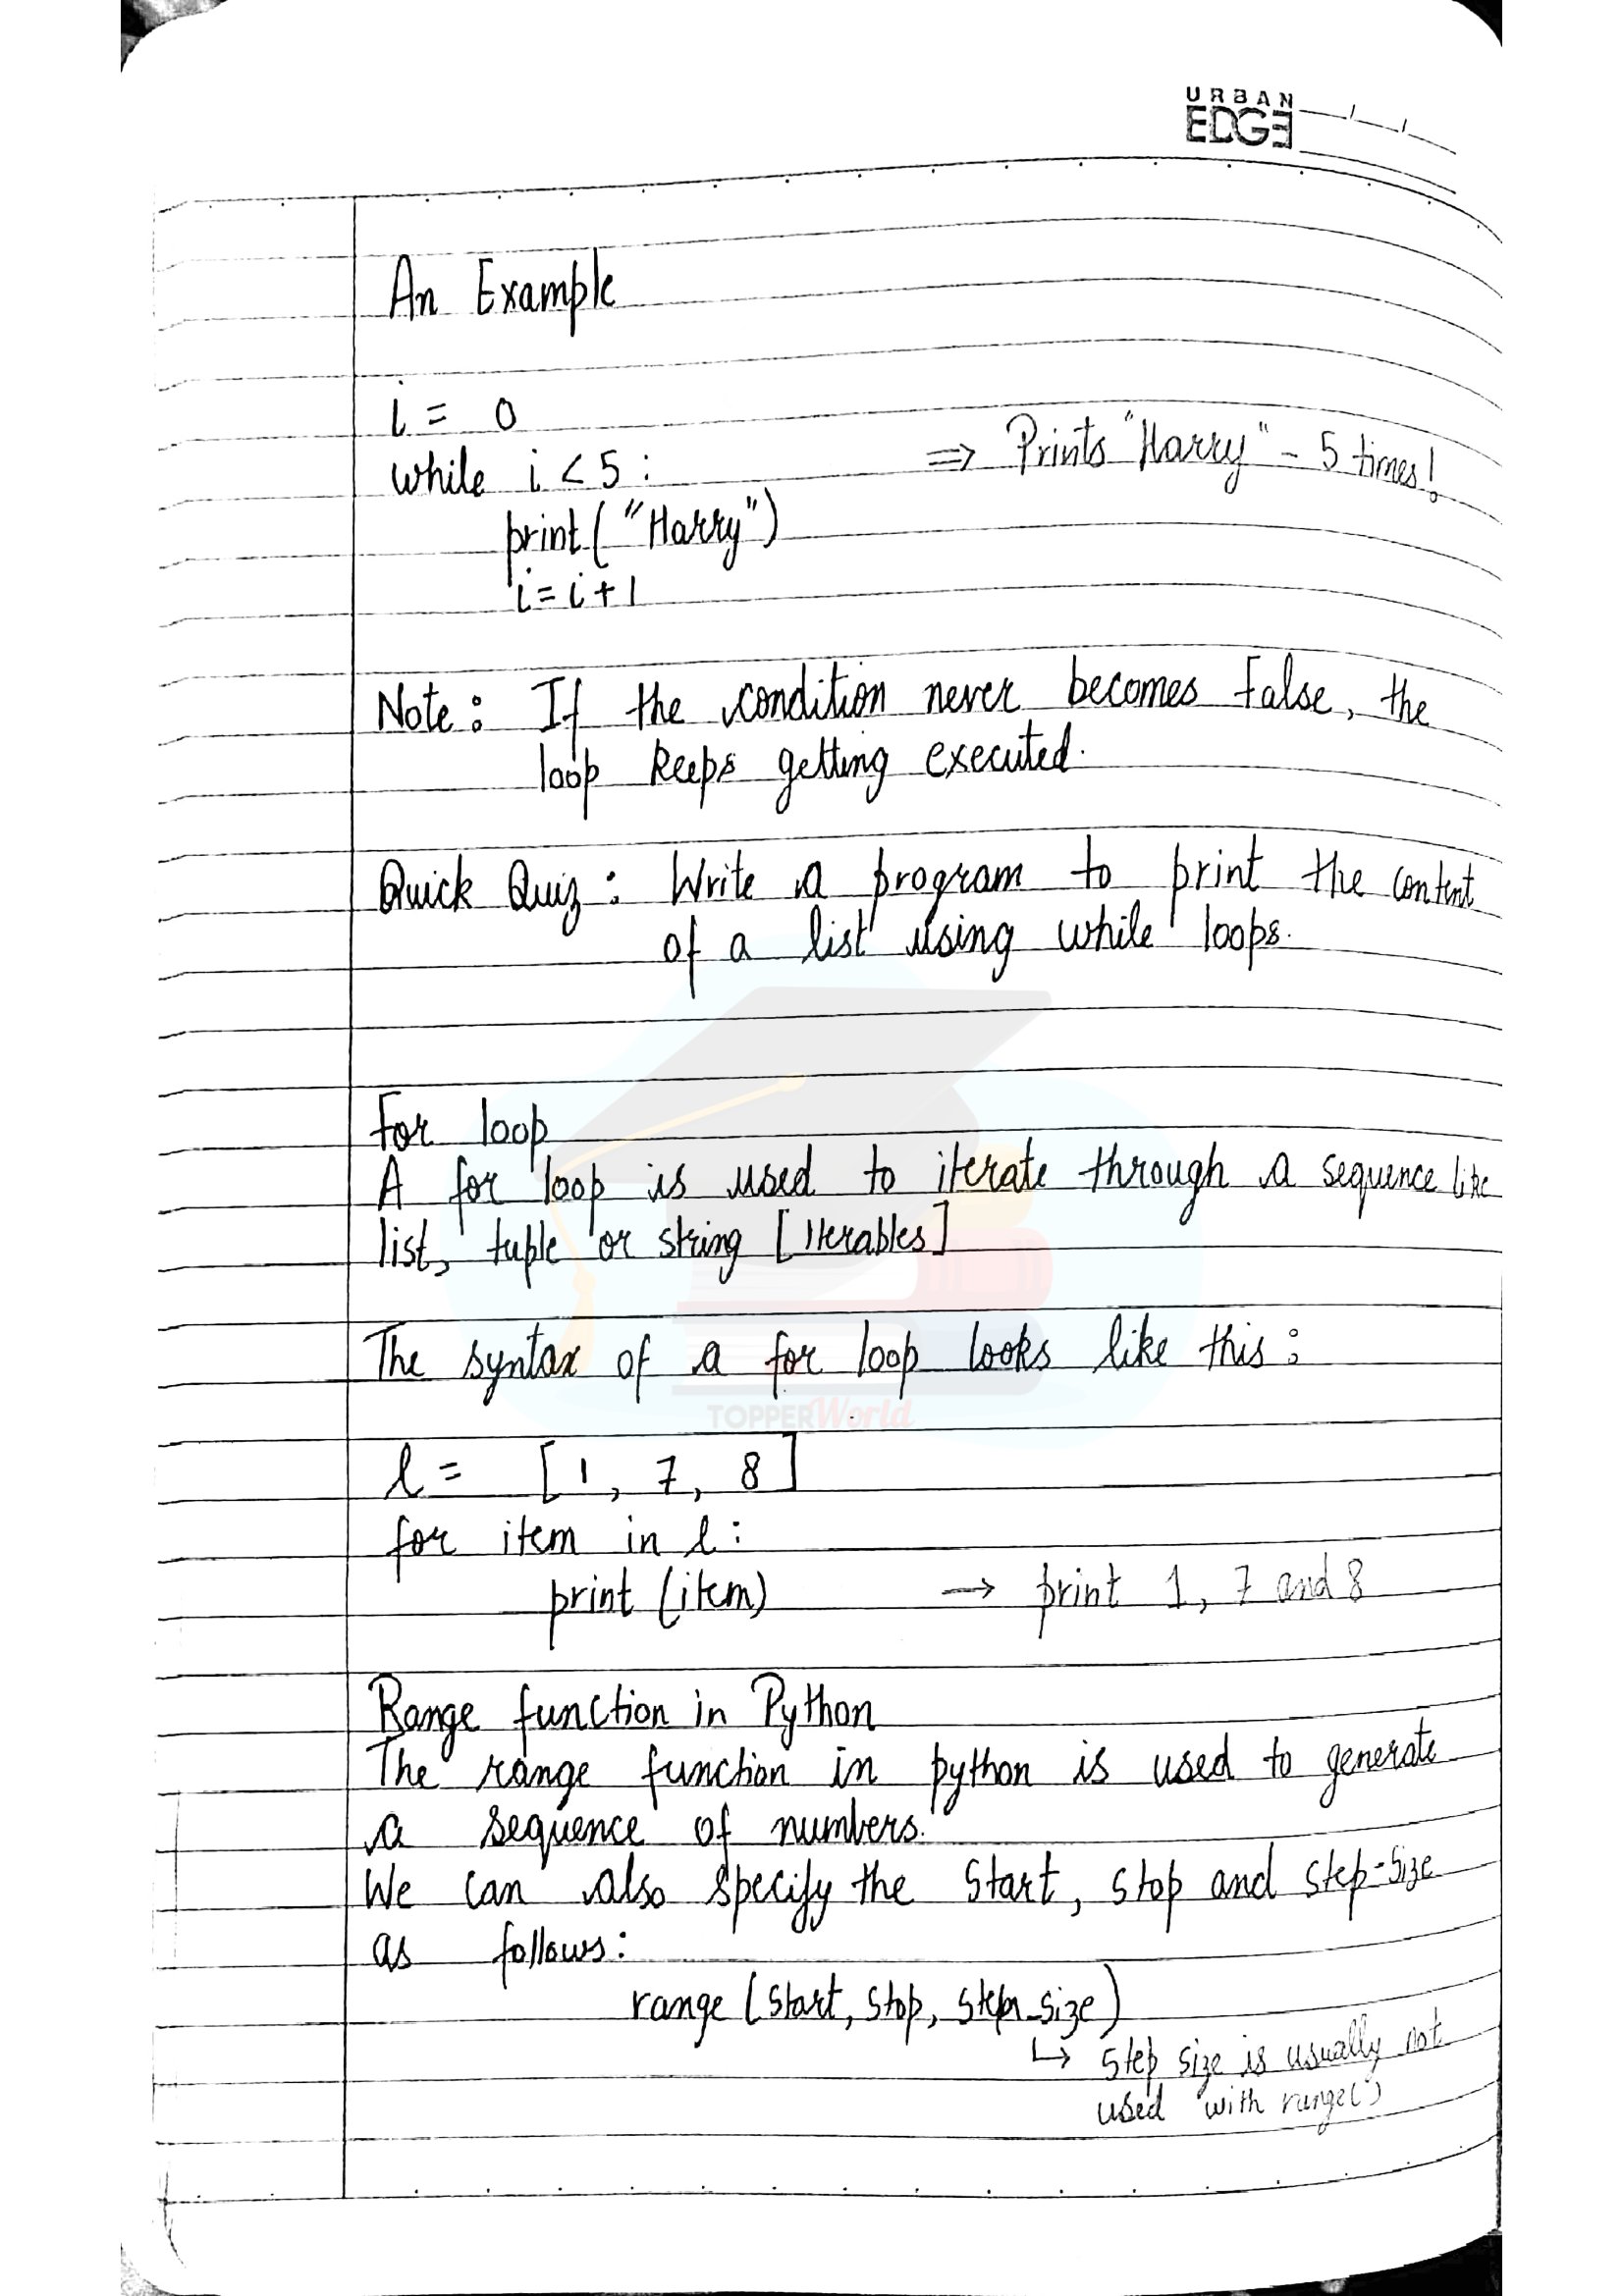 URBAN
EDGE
An Example
i = 0
while i < 5 :
⇒ Prints "Harry" - 5 times!
print ("Harry")
i = i + 1
Note : If the condition never becomes False, the
loop keeps getting executed.
Quick Quiz : Write a program to print the content
of a list using while loops.
For loop
A for loop is used to iterate through a sequence like
list, tuple or string [Iterables]
The syntax of a for loop looks like this :
TOPPERWorld
l = [1, 7, 8]
for item in l :
print (item) → print 1, 7 and 8
Range function in Python
The range function in python is used to generate
a sequence of numbers.
We can also specify the start, stop and step-size
as follows :
range (start, stop, step_size)
↳ step size is usually not
used with range()